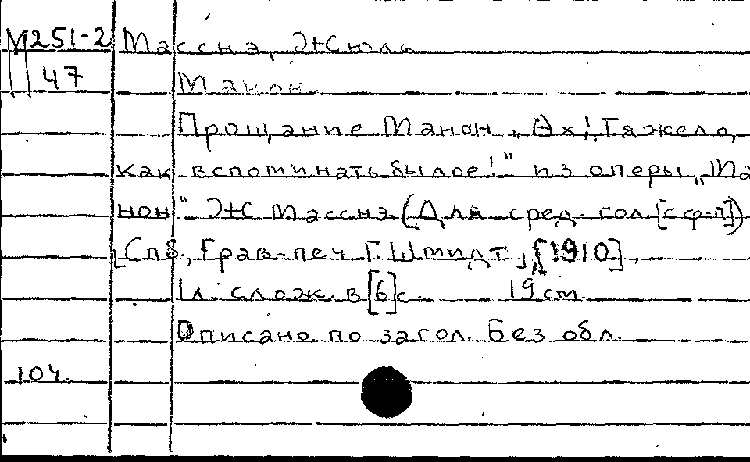 М251-2 Масснэ, Жюль
47 Манон.
Прощание Манон „Эх! Тяжело,
как вспоминать былое!" из оперы „Ма
нон" Ж Масснэ (Для сред. гол. [с ф-п])
[Спб., Грав.-печ Г. Шмидт, [1910].
1 л. слож. в [6] с. 19 cm.
Описано по загол. Без обл.
104.